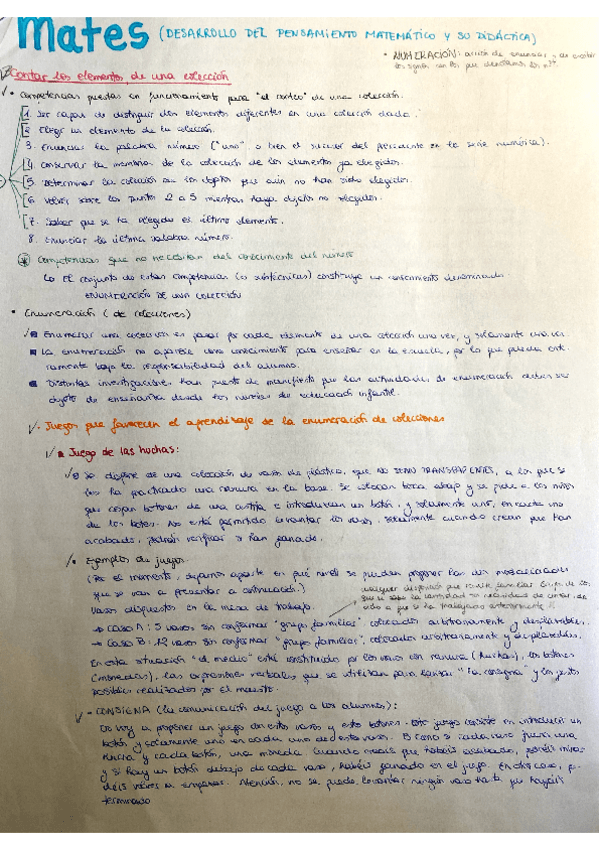 Mates (DESARROLLO DEL PENSAMIENTO MATEMÁTICO Y SU DIDÁCTICA)
• NUMERACIÓN: acción de enumerar y de escribir
los signos con los que
Contar los elementos de una colección
• Competencias puestas en funcionamiento para "el conteo" de una colección.
1. Ser capaz de distinguir dos elementos diferentes en una colección dada.
2. Elegir un elemento de la colección.
3. Enunciar la palabra número ("uno" o bien el sucesor del precedente en la serie numérica).
4. Conservar la memoria de la colección de los elementos ya elegidos.
5. Determinar la colección de los objetos que aún no han sido elegidos.
6. Volver sobre los puntos 2 a 5 mientras haya objetos no elegidos.
7. Saber que se ha elegido el último elemento.
8. Enunciar la última palabra número.
* Competencias que no necesitan del conocimiento del número
El conjunto de estas competencias (o subtécnicas) constituye un conocimiento denominado
ENUMERACIÓN DE UNA COLECCIÓN
• Enumeración (de colecciones)
Enumerar una colección es pasar por cada elemento de una colección una vez, y solamente una vez.
La enumeración no aparece como conocimiento para enseñar en la escuela, por lo que queda ente-
ramente bajo la responsabilidad del alumno.
Distintas investigaciones han puesto de manifiesto que las actividades de enumeración deben ser
objeto de enseñanza desde los niveles de educación infantil.
Juegos que favorecen el aprendizaje de la enumeración de colecciones
Juego de las huchas:
Se dispone de una colección de vasos de plástico, que NO SEAN TRANSPARENTES, a los que se
les ha practicado una ranura en la base. Se colocan boca abajo y se pide a los niños
que cojan botones de una cajita e introduzcan un botón, y solamente uno, en cada uno
de los botes. No está permitido levantar los vasos, solamente cuando crean que han
acabado, podrán verificar si han ganado.
• Ejemplos de juegos.
(Por el momento, dejamos aparte en qué nivel se pueden proponer las
que se van a presentar a continuación.)
vasos dispuestos en la mesa de trabajo.
→ CASO A: 5 vasos sin conformar "grupos familias" colocados arbitrariamente y desplazables.
→ CASO B: 12 vasos sin conformar "grupos familias", colocados arbitrariamente y desplazables.
En esta situación "el medio" está constituido por los vasos con ranura (huchas), los botones
(monedas), las expresiones verbales que se utilizan para lanzar "la consigna" y los gestos
posibles realizados por el maestro.
- CONSIGNA (la comunicación del juego a los alumnos):
Os voy a proponer un juego con estos vasos y estos botones. Este juego consiste en introducir un
botón y solamente uno en cada uno de estos vasos. Es como si cada vaso fuera una
hucha y cada botón, una moneda. Cuando creáis que habéis acabado, podéis mirar
y si hay un botón debajo de cada vaso, habéis ganado en el juego. En otro caso, po-
déis volver a empezar. Atención, no se puede levantar ningún vaso hasta que hayáis
terminado